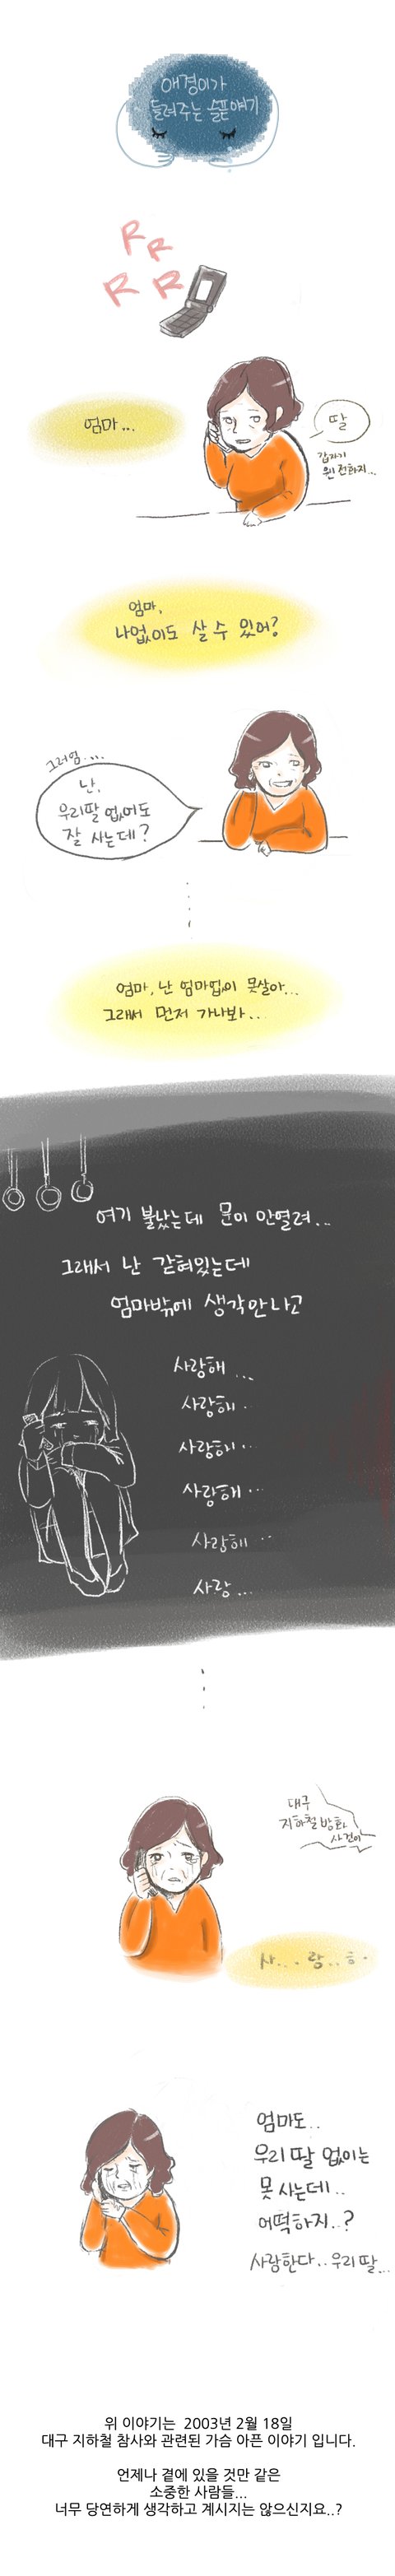 애경이가
들려주는 슬픈얘기
R R
R R
엄마...
딸
갑자기
웬 전화지...
엄마,
나없이도 살 수 있어?
그러엄....
난,
우리딸 없어도
잘 사는데?
엄마, 난 엄마없이 못살아...
그래서 먼저 가나봐...
여기 불났는데 문이 안열려...
그래서 난 갇혀있는데
엄마밖에 생각안나고
사랑해 ...
사랑해 ..
사랑해 ...
사랑해 ...
사랑해 ..
사랑...
대구
지하철 방화
사건이
사... 랑.. ㅎ.
엄마도..
우리 딸 없이는
못 사는데..
어떡하지..?
사랑한다.. 우리 딸...
위 이야기는 2003년 2월 18일
대구 지하철 참사와 관련된 가슴 아픈 이야기 입니다.
언제나 곁에 있을 것만 같은
소중한 사람들...
너무 당연하게 생각하고 계시지는 않으신지요..?